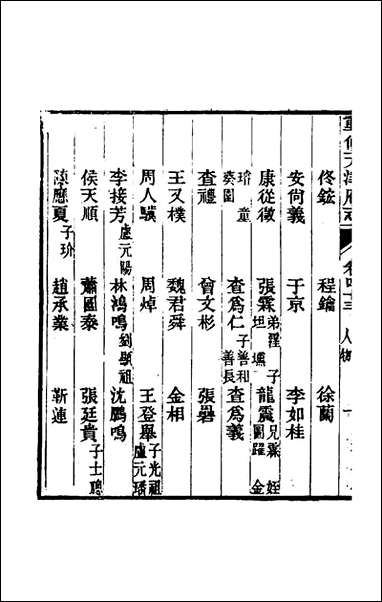 重修天津府志 卷四十三 人物
佟鋐 程鑰 徐蘭
安尙義 于京 李如桂
康從徵 張霖 弟霔 子坦 壎 龍震 兄霖 姪國躍 金
瑢 童葵園 查爲仁 子善和 善長 查爲義
查禮 曾文彬 張礜
王又樸 魏君舜 金相
周人驥 周焯 王登舉 子光祖 盧元璂
李接芳 盧元陽 林鴻鳴 劉顯祖 沈鵬鳴
侯天順 蕭國泰 張廷貴 子士聰
應夏 子玠 趙承業 靳蓮